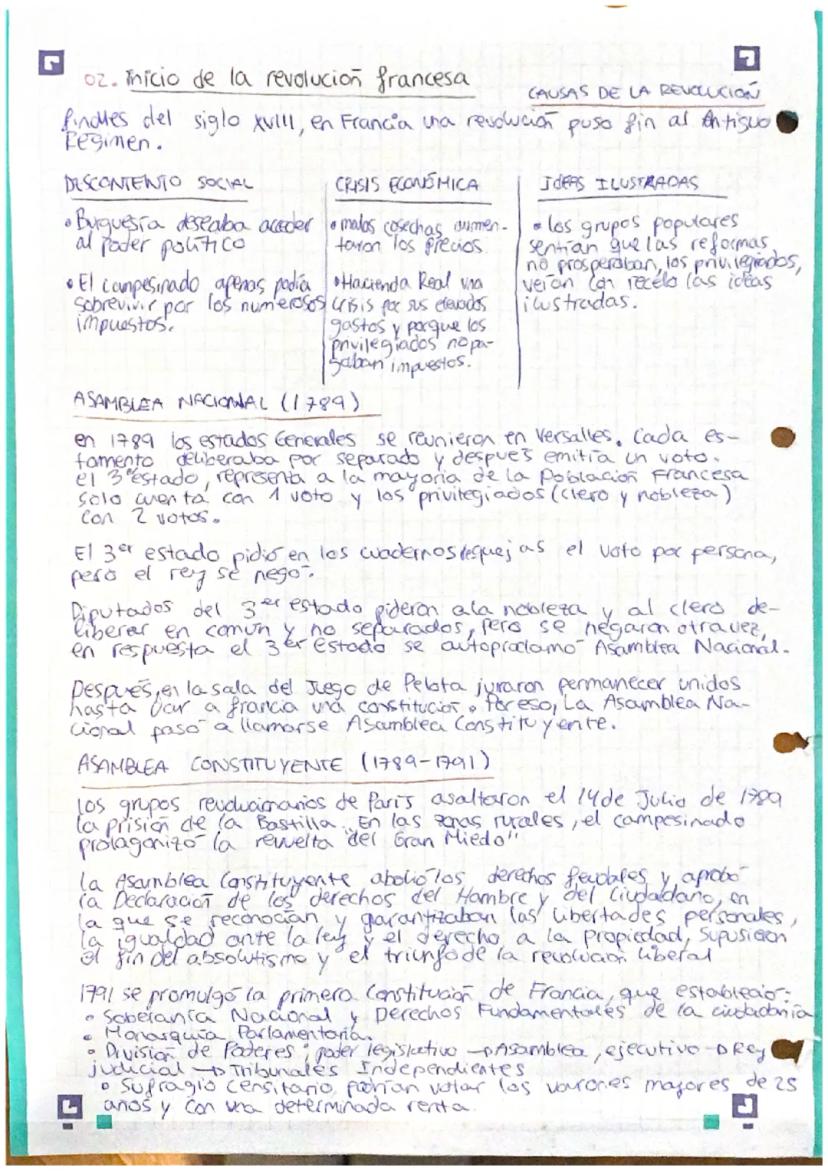 02. Inicio de la revolución francesa
CAUSAS DE LA REVOLUCIÓN
finales del siglo XVIII, en Francia una revolución puso fin al Antiguo
Régimen.
DESCONTENTO SOCIAL
• Burguesía deseaba acceder
al poder político
• El campesinado apenas podía
sobrevivir por los numerosos
impuestos.
CRISIS ECONÓMICA
• malas cosechas aumen-
taron los precios.
• Hacienda Real una
crisis por sus elevados
gastos y porque los
privilegiados no pa-
gaban impuestos.
IDEAS ILUSTRADAS
• los grupos populares
sentían que las reformas
no prosperaban, los privilegiados,
veían con recelo las ideas
ilustradas.
ASAMBLEA NACIONAL (1789)
en 1789 los estados Generales se reunieron en Versalles. Cada es-
tamento deliberaba por separado y después emitía un voto.
el 3er estado, representa a la mayoría de la Población Francesa
solo cuenta con 1 voto y los privilegiados (clero y nobleza)
con 2 votos.
El 3er estado pidió en los cuadernos de quejas el voto por persona,
pero el rey se negó.
Diputados del 3er estado pideron a la nobleza y al clero de-
liberar en común y no separados, pero se negaron otra vez,
en respuesta el 3er Estado se autoproclamó Asamblea Nacional.
Después, en la sala del Juego de Pelota juraron permanecer unidos
hasta dar a francia una constitución. Por eso, La Asamblea Na-
cional pasó a llamarse Asamblea Constituyente.
ASAMBLEA CONSTITUYENTE (1789-1791)
los grupos revolucionarios de París asaltaron el 14 de Julio de 1789
la prisión de la Bastilla. En las zonas rurales, el campesinado
protagonizó la revuelta del Gran Miedo"
la Asamblea Constituyente abolió los derechos feudales y aprobó
la Declaración de los derechos del Hombre y del Ciudadano, en
la que se reconocían y garantizaban las libertades personales,
la igualdad ante la ley y el derecho a la propiedad, supusieron
el fin del absolutismo y el triunfo de la revolución liberal
1791 se promulgó la primera Constitución de Francia, que estableció:
• Soberanía Nacional y Derechos Fundamentales de la ciudadanía
• Monarquía Parlamentaria.
• División de Poderes: poder legislativo → Asamblea, ejecutivo → Rey
judicial → Tribunales Independientes
• Sufragio censitario, podrían votar los varones mayores de 25
años y con una determinada renta.